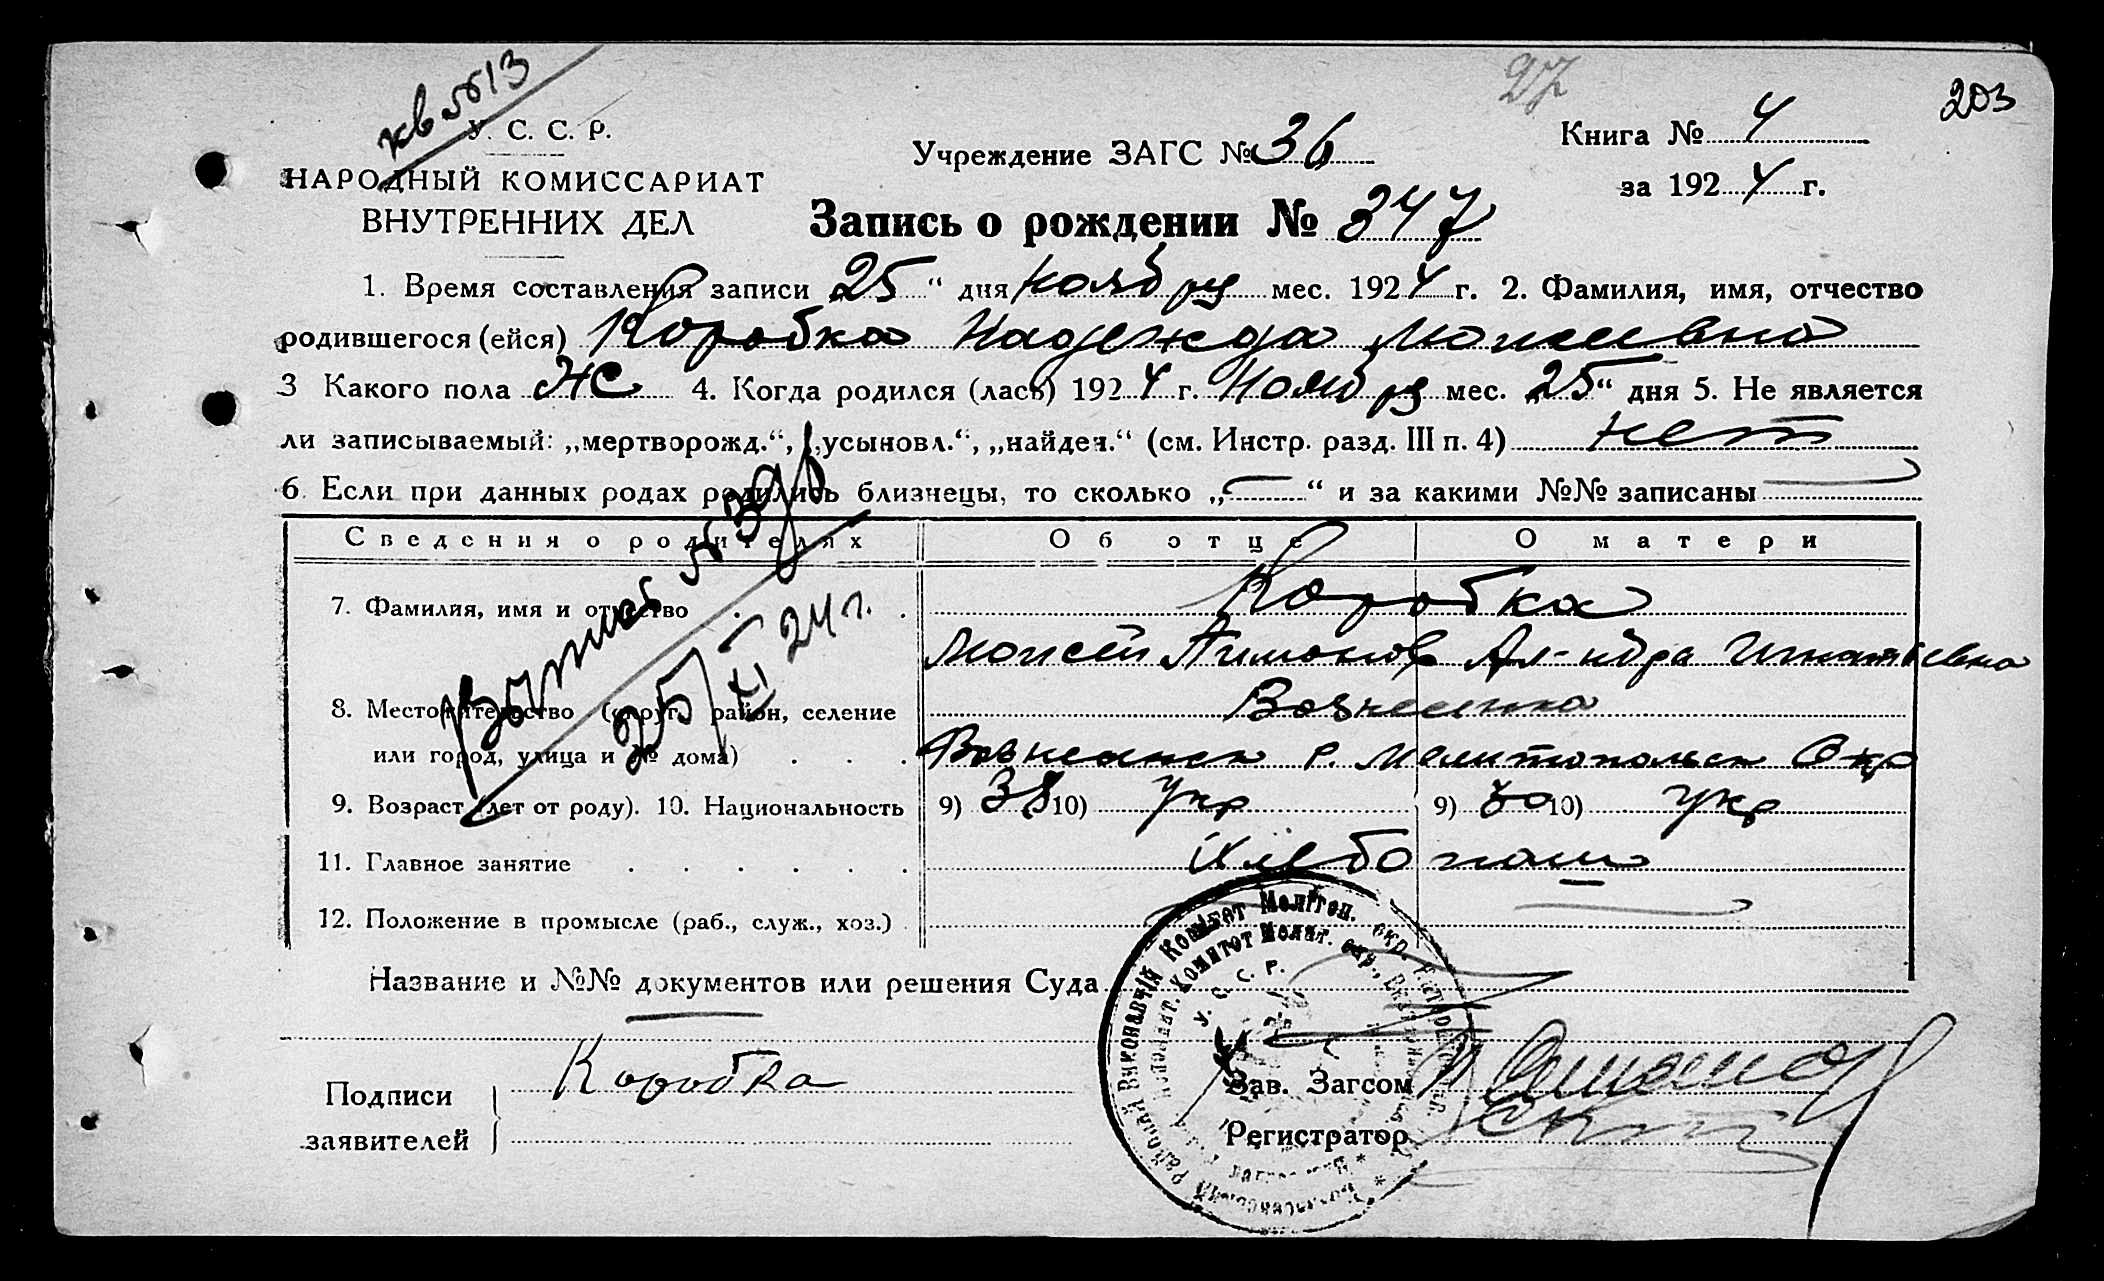 27
203
кв №513
У. С. С. Р.
НАРОДНЫЙ КОМИССАРИАТ
ВНУТРЕННИХ ДЕЛ
Учреждение ЗАГС № 36
Книга № 4
за 1924 г.
Запись о рождении № 347
1. Время составления записи 25 “ дня ноября мес. 1924 г. 2. Фамилия, имя, отчество
родившегося (ейся) Коробка Надежда Моисеевна
3 Какого пола Ж 4. Когда родился (лась) 1924 г. Ноября мес. „25“ дня 5. Не является
ли записываемый: „мертворожд.“, „усыновл.“, „найден.“ (см. Инстр. разд. III п. 4) нет
6. Если при данных родах родились близнецы, то сколько „—“ и за какими №№ записаны
Сведения о родителях Об отце О матери
7. Фамилия, имя и отчество Коробка
Моисей Ал-ндра Игнатьевна
8. Местожительство (округ, район, селение Вознесенка
или город, улица и № дома) Вознесенск р. Мелитопольск Окр
9. Возраст (лет от роду). 10. Национальность 9) 38 10) Укр 9) 30 10) Укр
11. Главное занятие Хлебопаш
12. Положение в промысле (раб., служ., хоз.)
25/XI 24 г.
Название и №№ документов или решения Суда
Подписи
заявителей
Коробка
Зав. Загсом
Регистратор
У. С. Р.